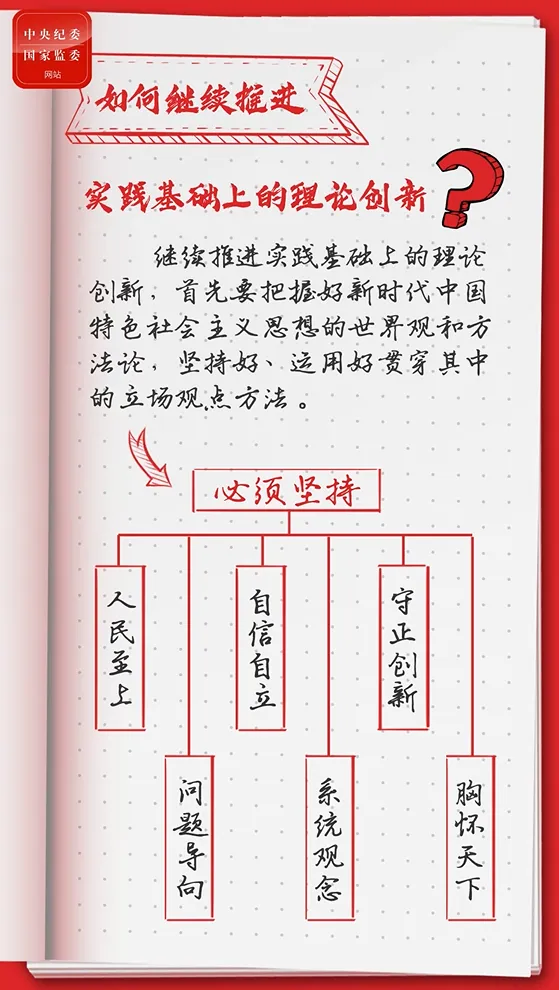 中央纪委
国家监委
网站
如何继续推进
实践基础上的理论创新
?
继续推进实践基础上的理论
创新，首先要把握好新时代中国
特色社会主义思想的世界观和方
法论，坚持好、运用好贯穿其中
的立场观点方法。
必须坚持
人民至上
自信自立
守正创新
问题导向
系统观念
胸怀天下